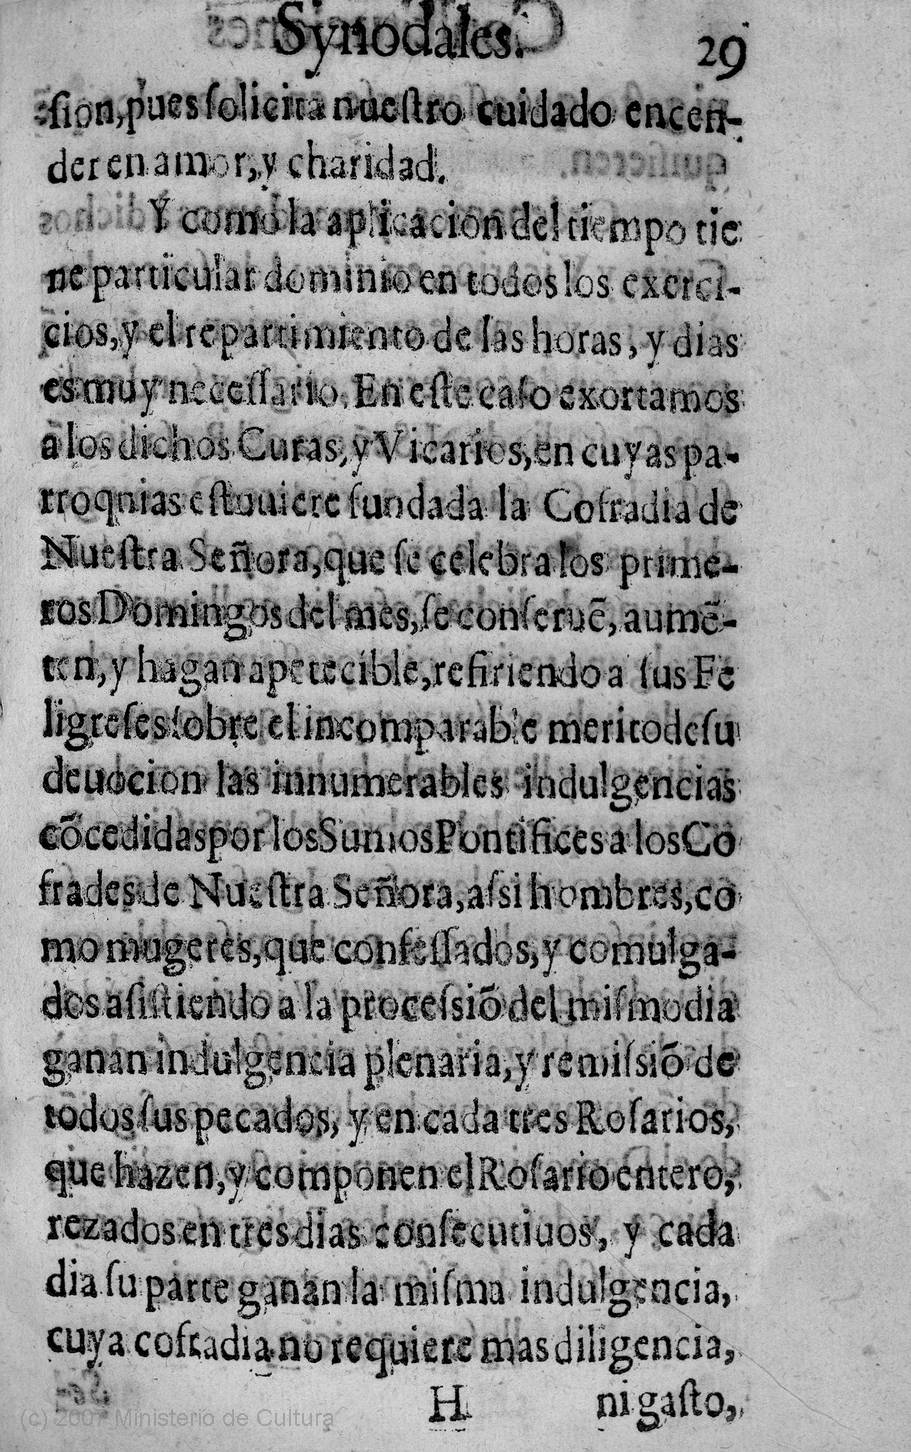 Synodales. 29
sion, pues solicita nuestro cuidado encen-
der en amor, y charidad.
Y como la aplicacion del tiempo tie
ne particular dominio en todos los exerci-
cios, y el repartimiento de las horas, y dias
es muy necessario. En este caso exortamos
a los dichos Curas, y Vicarios, en cuyas pa-
rroquias estouiere fundada la Cofradia de
Nuestra Señora, que se celebra los prime-
ros Domingos del mes, se conseruē, aumē-
ten, y hagan apetecible, refiriendo a sus Fe
ligreses sobre el incomparable merito de su
deuocion las innumerables indulgencias
cōcedidas por los Sumos Pontifices a los Co
frades de Nuestra Señora, assi hombres, co
mo mugeres, que confessados, y comulga-
dos asistiendo a la processiō del mismo dia
ganan indulgencia plenaria, y remissiō de
todos sus pecados, y en cada tres Rosarios,
que hazen, y componen el Rosario entero,
rezados en tres dias consecutiuos, y cada
dia su parte ganan la misma indulgencia,
cuya cofradia no requiere mas diligencia,
H ni gasto,
(c) 2007 Ministerio de Cultura